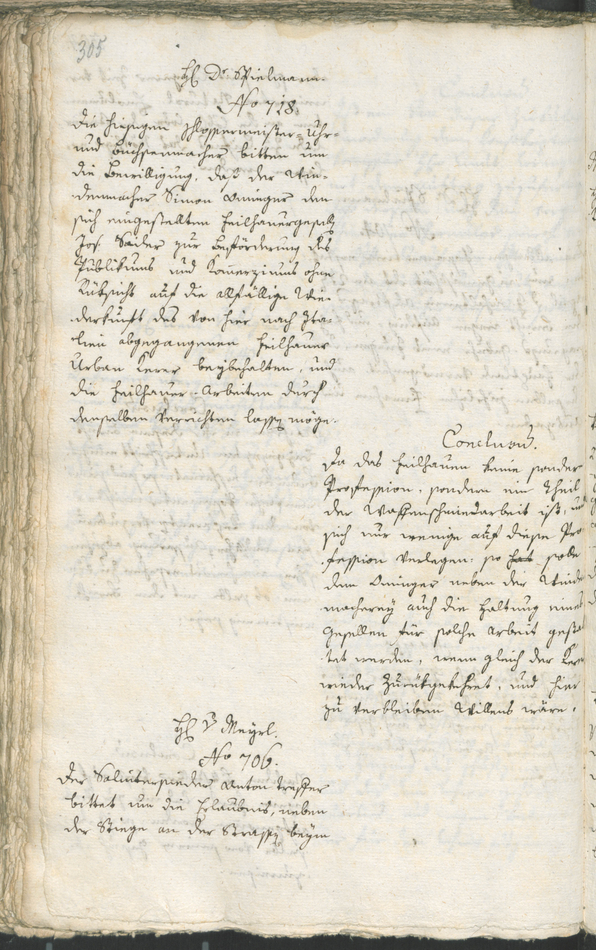 305
H. Dr. Spielmann.
No 718.
Die hiesigen Schlossermeister-Uhr-
und Büchsenmacher bitten um
die Bewilligung, daß der Win-
denmacher Simon Oninger den
sich eingestellten Feilhauergeselln
Jos. Sailer zur Beförderung des
Publikums und Komerziums ohne
Rüksicht auf die allfällige Wie-
derkunft des von hier nach Ita-
lien abgegangenen Feilhauer
Urban Kerer beybehalten, und
die Feilhauer-Arbeiten durch
denselben verrichten lassen möge.
Conclusum.
Da das Feilhauen keine sonder
Profession, sondern ein Theil
der Waffenschmiedarbeit ist, und
sich nur wenige auf diese Pro-
fession verlegen: so solle
dem Oninger neben der Winde-
macherey auch die Haltung eines
Gesellen für solche Arbeit gestat-
tet werden, wenn gleich der Kerer
wieder zurükgekehret, und hier
zu verbleiben Willens wäre.
H. v. Meyrl.
No 706.
Der Saliterpieder Anton
bittet um die Erlaubnis, neben
der Stiege an der Strassen beym